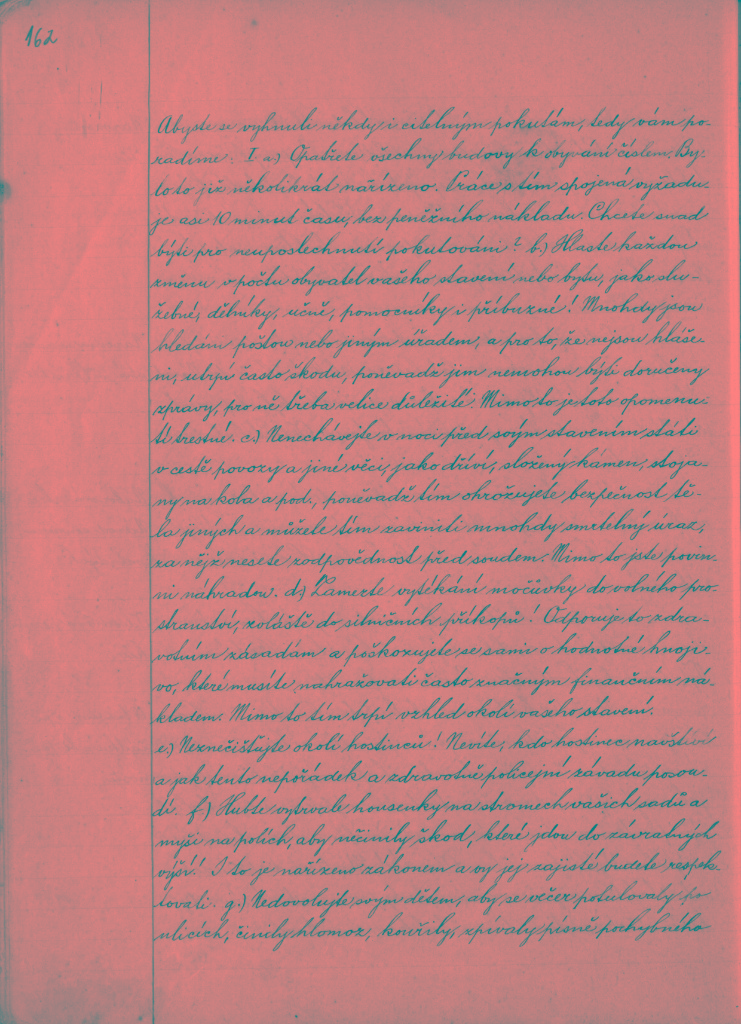 162
Abyste se vyhnuli někdy i citelným pokutám, tedy vám po-
radíme: I. a.) Opatřete všechny budovy k obývání číslem. By-
lo to již několikrát nařízeno. Práce s tím spojená vyžadu-
je asi 10 minut času, bez peněžního nákladu. Chcete snad
býti pro neuposlechnutí pokutováni? b.) Hlaste každou
změnu v počtu obyvatel vašeho stavení nebo bytu, jako slu-
žebné, dělníky, učně, pomocníky i příbuzné! Mnohdy jsou
hledáni poštou nebo jiným úřadem, a pro to, že nejsou hláše-
ni, utrpí často škodu, poněvadž jim nemohou býti doručeny
zprávy, pro ně třeba velice důležité. Mimo to je toto opomenu-
tí trestné. c.) Nenechávejte v noci před svým stavením státi
v cestě povozy a jiné věci, jako dříví, složený kámen, stoja-
ny na kola a pod., poněvadž tím ohrožujete bezpečnost tě-
la jiných a můžete tím zaviniti mnohdy smrtelný úraz,
za nějž nesete zodpovědnost před soudem. Mimo to jste povin-
ni náhradou. d.) Zamezte vytékání močůvky do volného pro-
stranství, zvláště do silničních příkopů! Odporuje to zdra-
votním zásadám a poškozujete se sami o hodnotné hnoji-
vo, které musíte nahražovati často značným finančním ná-
kladem. Mimo to tím trpí vzhled okolí vašeho stavení.
e.) Neznečišťujte okolí hostinců! Nevíte, kdo hostinec navštíví
a jak tento nepořádek a zdravotně policejní závadu posou-
dí. f.) Hubte vytrvale housenky na stromech vašich sadů a
myši na polích, aby nečinily škod, které jdou do závratných
výší! I to je nařízeno zákonem a vy jej zajisté budete respek-
tovati. g.) Nedovolujte svým dětem, aby se večer potulovaly po
ulicích, činily hlomoz, kouřily, zpívaly písně pochybného